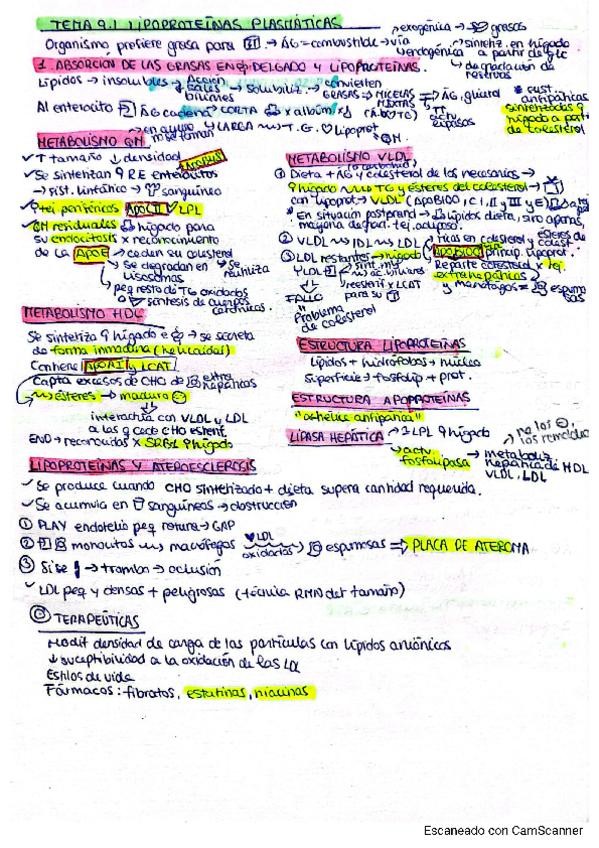 TEMA 9.1 LIPOPROTEÍNAS PLASMÁTICAS
exogénica → grasas
Organismo prefiere grasa para → ÁG = combustible → vía
endogénica → sintetiz. en hígado a partir de glc
→ degradación de reservas
1. ABSORCIÓN DE LAS GRASAS EN DELGADO Y LIPOPROTEÍNAS.
Lípidos → insolubles → Acción sales biliares → solubiliz. → convierten
GRASAS → MICELAS MIXTAS → ÁG, glicerol
* sust. antipáticas sintetizadas hígado a partir de colesterol
Al enterocito ÁG cadena CORTA x albúm
y LARGA → T.G. Lipoprot
QM.
METABOLISMO QM
↑ tamaño ↓ densidad
Se sintetizan RE enterocitos
→ sist. linfático → sanguíneo
tej periféricos APOCII LPL
QM residuales hígado para
su endocitosis x reconocimiento
de la APOE → ceden su colesterol
→ se degradan en lisosomas → se reutiliza
→ peq resto de TG oxidados
síntesis de cuerpos cetónicos.
METABOLISMO VLDL
① Dieta + ÁG y colesterol de los necesarios →
hígado TG y ésteres del colesterol →
con lipoprot → VLDL (APOB100, CI, II y III y E)
* En situación postprand → lípidos dieta, sino apenas,
mayoría de parti. tej. adiposo.
② VLDL → IDL → LDL
ricas en colesterol y ésteres de colest
APOB100 princip. lipoprot.
Reparte colesterol x tej.
extrahepáticos
y macrófagos = espumosas
③ LDL restantes → hígado
LDL → sint. ác. biliares
reesterif x LCAT para su
FALLO
"
Problema de colesterol
METABOLISMO HDL
Se sintetiza hígado e → se secreta
de forma inmadura (helicoidal)
Contiene APOAI y LCAT
Capta excesos de CHO de extrahepáticas
→ ésteres → maduro
interactúa con VLDL y LDL
a las q cede CHO esterif.
END → reconocidas x SRB1 hígado
ESTRUCTURA LIPOPROTEÍNAS
Lípidos + hidrófobos → núcleo
Superficie → fosfolip + prot.
ESTRUCTURA APOPROTEÍNAS
"αhélice antipática"
LIPASA HEPÁTICA → LPL hígado
→ activ fosfolipasa → metaboliz. hepática de HDL
VLDL, LDL
→ no los , los remodela
LIPOPROTEÍNAS Y ATEROESCLEROSIS
Se produce cuando CHO sintetizado + dieta supera cantidad requerida.
Se acumula en sanguíneos → obstrucción
① PLAY endotelio peq rotura → GAP
② monocitos → macrófagos LDL oxidadas → espumosas ⇒ PLACA DE ATEROMA
③ Si se → trombo → oclusión
LDL peq y densas + peligrosas (técnica RMN det tamaño)
TERAPEÚTICAS
Modif densidad de carga de las partículas con lípidos aniónicos
↓ suceptibilidad a la oxidación de las
Estilos de vida
Fármacos: fibratos, estatinas, niacinas
Escaneado con CamScanner